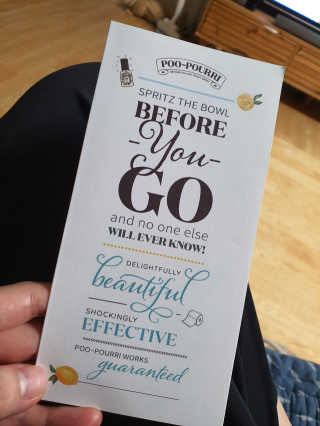 POO-POURRI
SPRITZ THE BOWL
BEFORE
-You-
GO
and no one else
WILL EVER KNOW!
DELIGHTFULLY
beautiful
SHOCKINGLY
EFFECTIVE
POO-POURRI WORKS
guaranteed